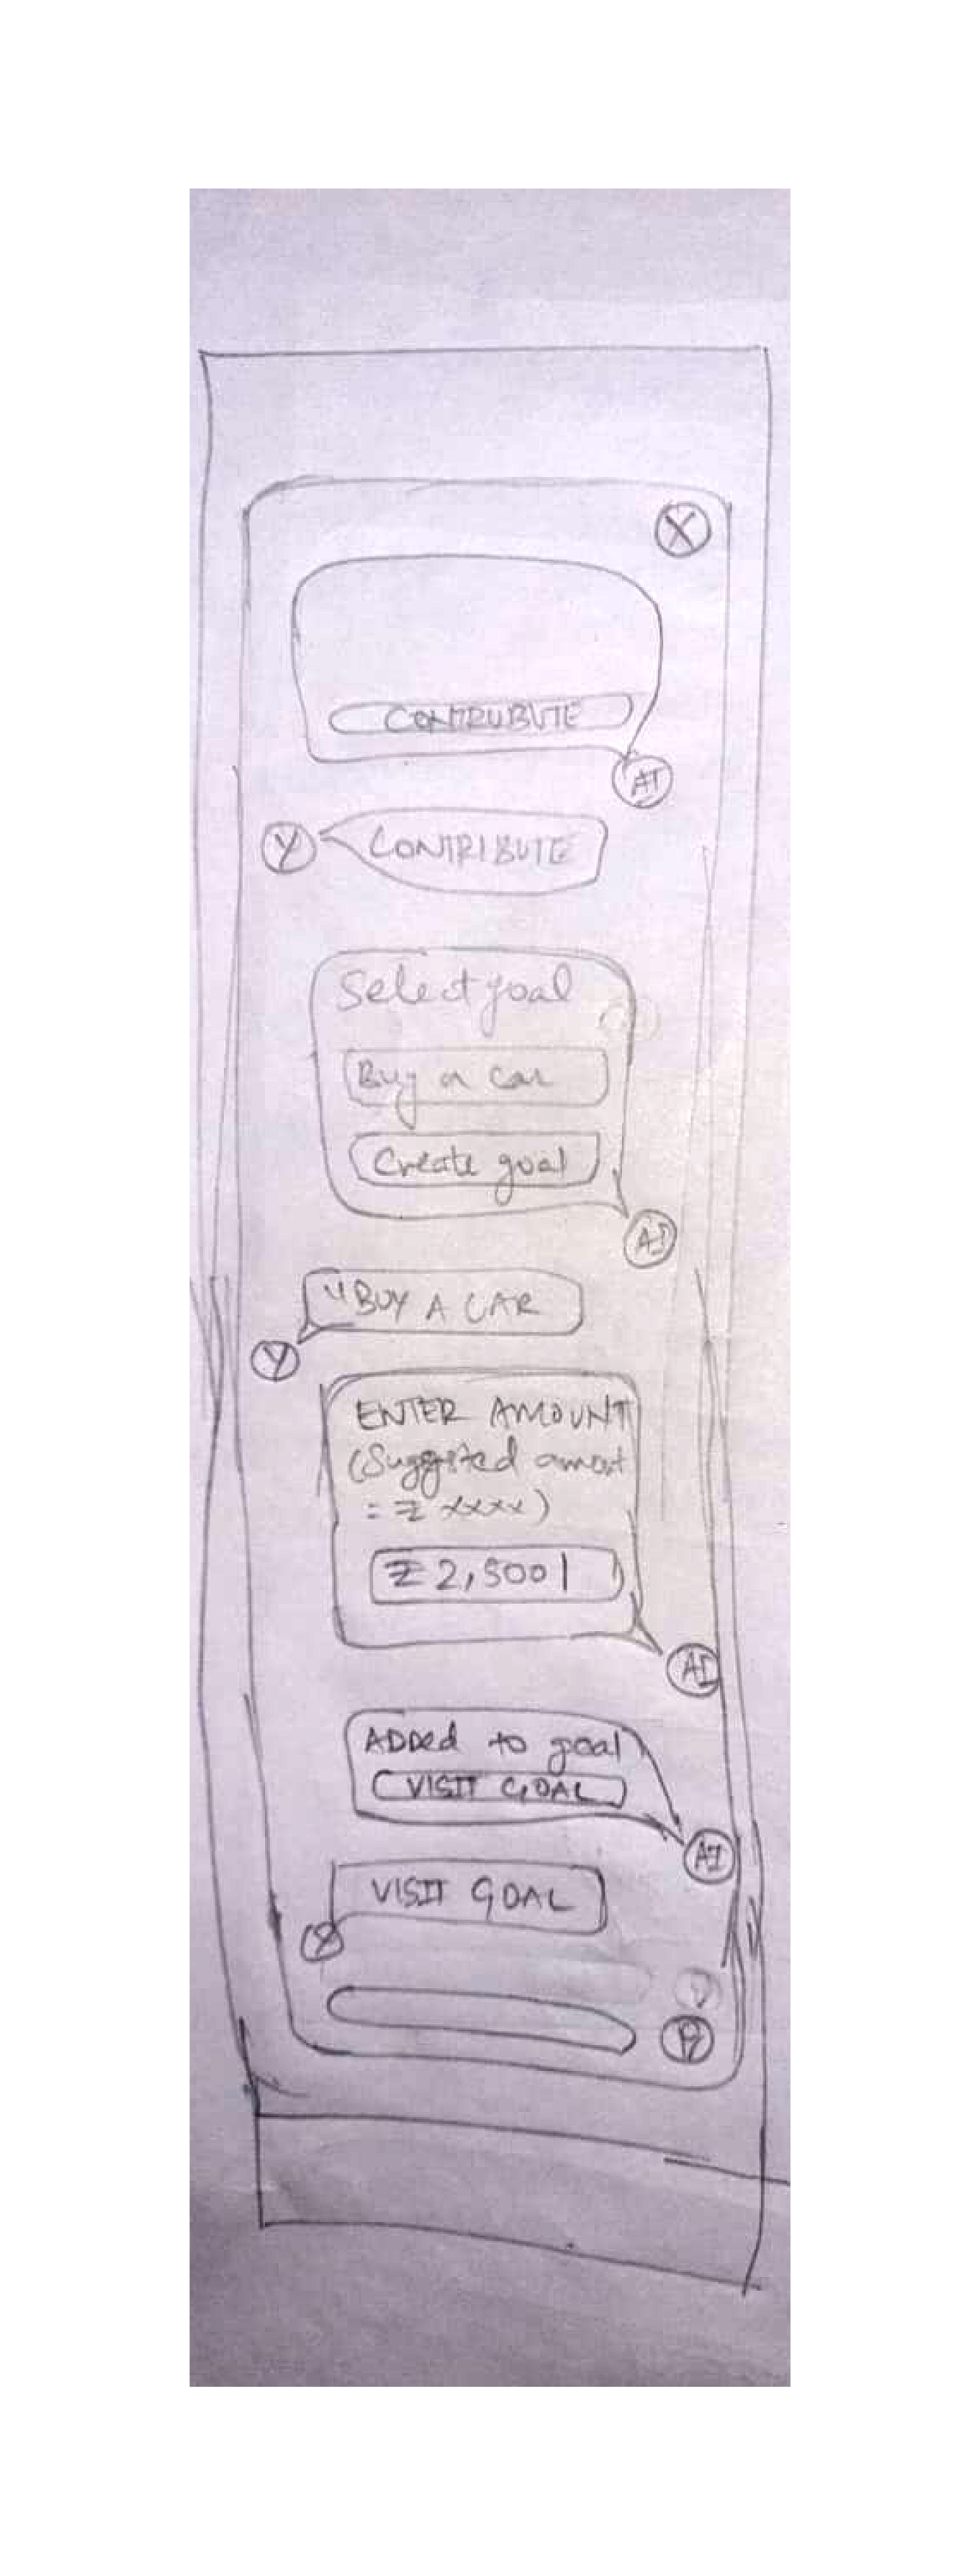 X
CONTRUBUTE
AI
Y
CONTRIBUTE
Select goal
Buy a car
Create goal
AI
"BUY A CAR
Y
ENTER AMOUNT
(Suggested amount
= ₹ xxxx)
₹ 2,500|
AI
ADDed to goal
VISIT GOAL
AI
VISIT GOAL
Y